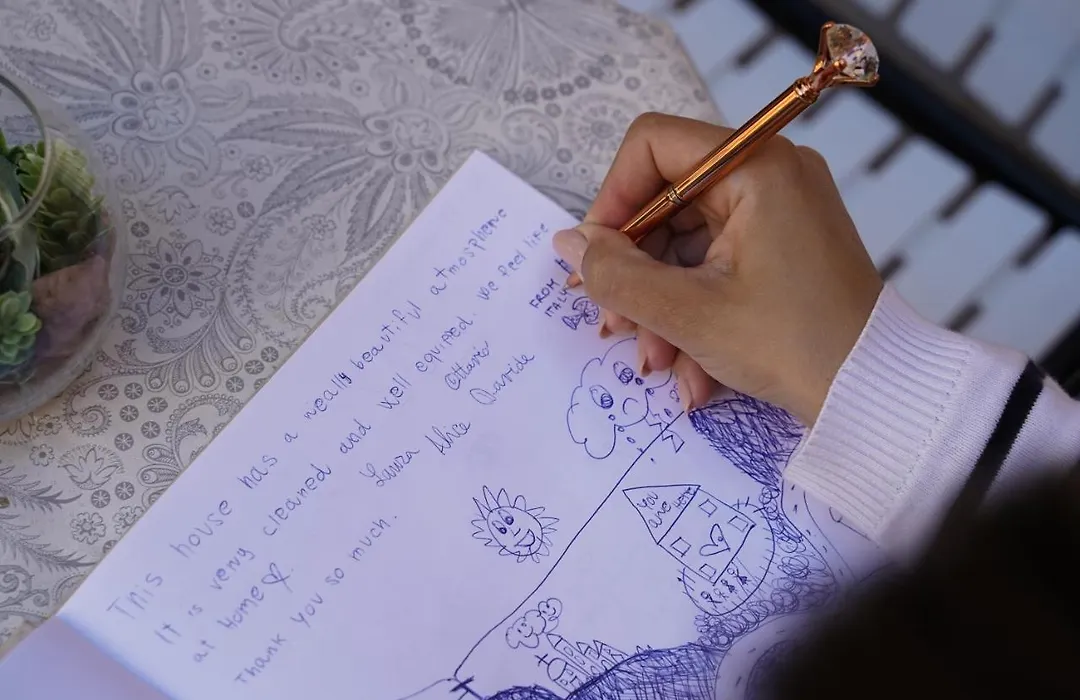 This house has a really beautiful atmosphere
It is very cleaned and well equipped. We feel like
at Home
Thank you so much.
Laura Alice
Davide
FROM
ITALY
YOU
are HOME